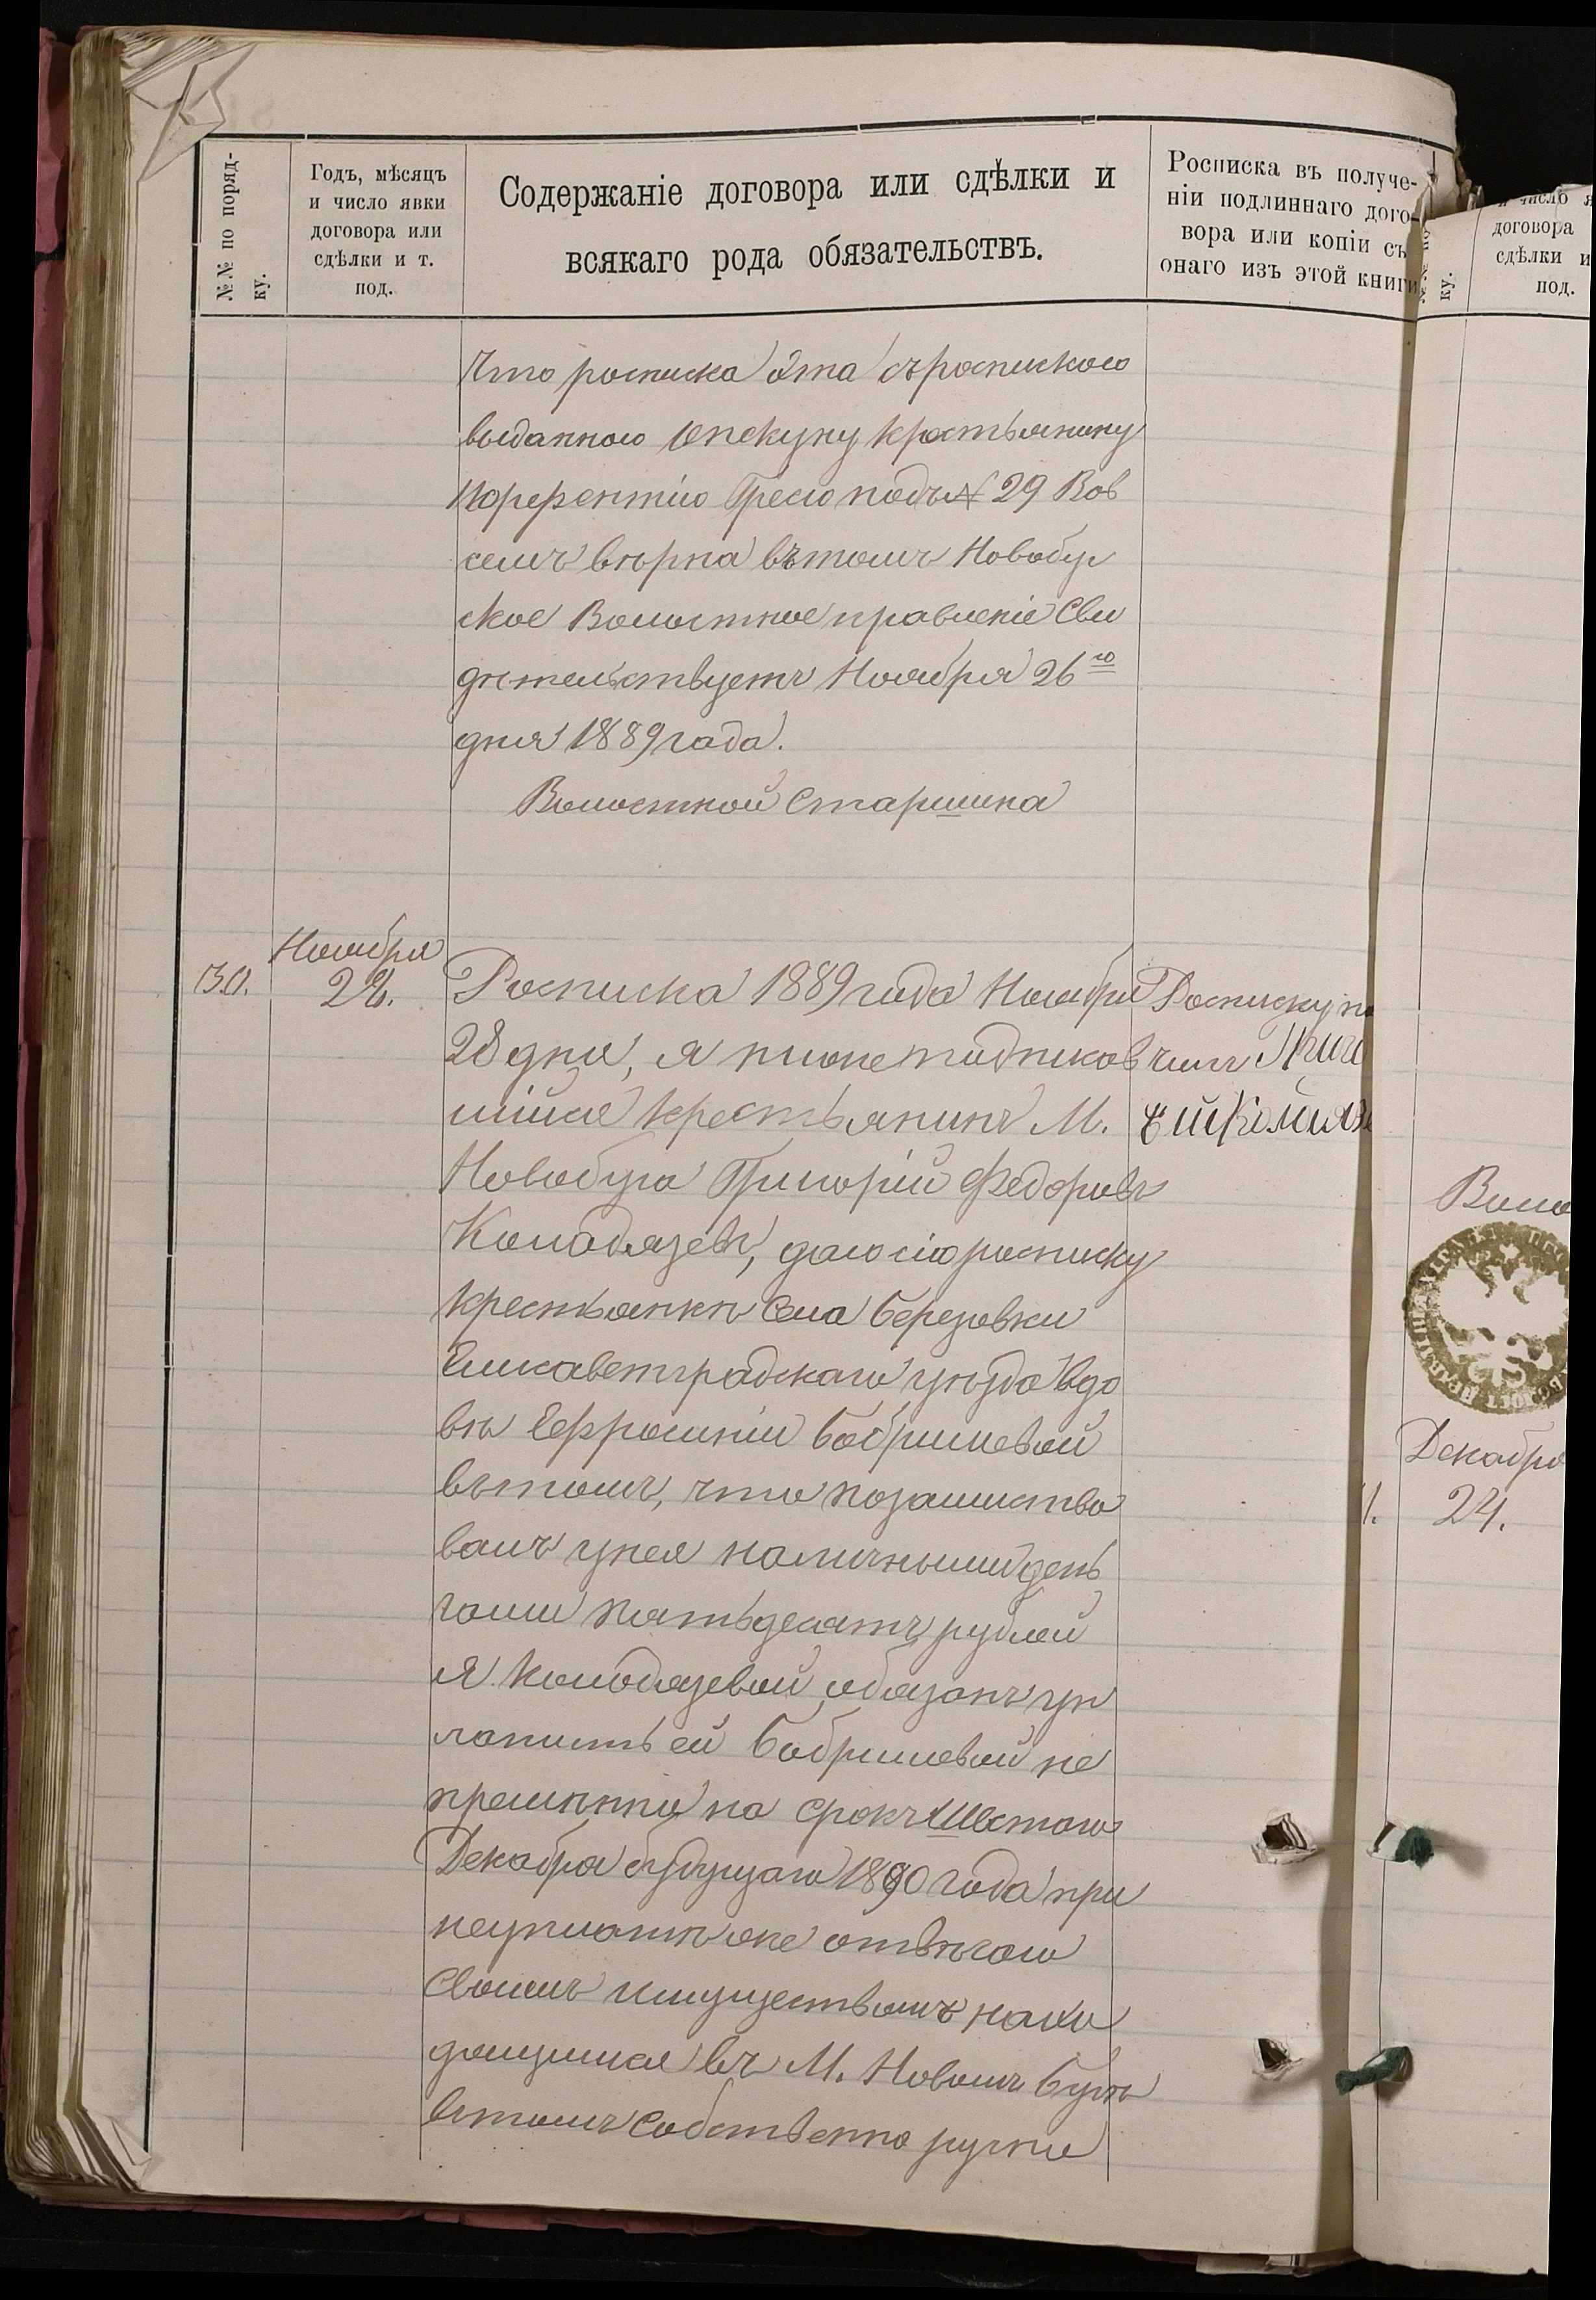 №№ по поряд-
ку.
Годъ, мѣсяцъ
и число явки
договора или
сдѣлки и т.
под.
Содержаніе договора или сдѣлки и
всякаго рода обязательствъ.
Росписка въ получе-
ніи подлиннаго дого-
вора или копіи съ
онаго изъ этой книги
Что росписка эта съ роспискою
выданною Опекуну крестьянину
Терентію подъ № 29 Вов
семъ вѣрна въ томъ Новобуг
ское Волостное правленіе Сви
дѣтельствуетъ Ноября 26го
дня 1889 года.
Волостной Старшина
30.
Ноября
28.
Росписка 1889 года Ноября
28 дня, я ниже подписав
шійся крестьянинъ М.
Новобуга Григорій Федоровъ
Колодязевъ, даю сію росписку
крестьянкѣ Села Березовки
Елисаветградскаго уѣзда вдо
вѣ Ефросиніи Бабришевой
въ томъ, что позаимство
валъ у нея наличными день
гами пятьдесятъ рублей
Я Колодязевъ обязанъ уп
латить ей Бабришевой не
премѣнно на срокъ Шестого
Декабря будущаго 1890 года при
неуплатѣ же отвѣчаю
Своимъ имуществомъ нахо
дящимся въ М. Новомъ Бугѣ
въ томъ Собственно ручно
Росписку по
чилъ Григо
ий Колодязе
число я
договора
сдѣлки и
под.
ку.
Воло
Декабря
24.